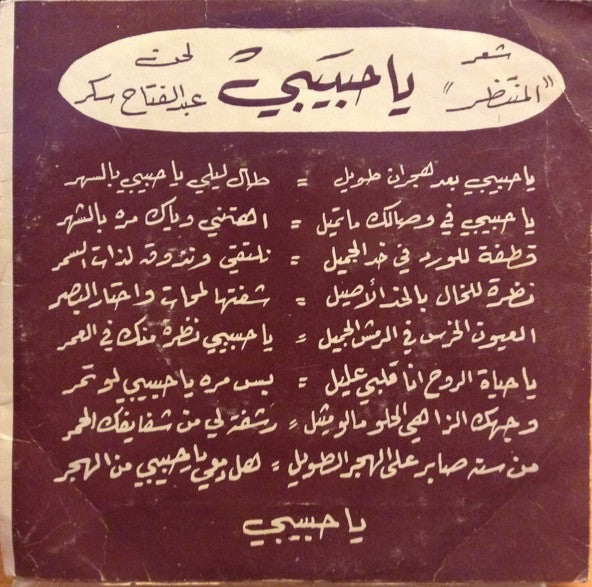 شعر "المنتظر" يا حبيبي لحن عبدالفتاح سكر
يا حبيبي بعد هجران طويل = طال ليلي يا حبيبي بالسهر
يا حبيبي في وصالك ما تميل = اهتنني وياك مره بالشهر
قطفة للورد في خد الجميل = نلتقي ونذوق لذات السمر
نظرة للخال بالخد الأصيل = شفتها لمحات واحتار البصر
العيون الخرس في الرمش الجميل = يا حبيبي نظره منك في العمر
يا حياة الروح انا قلبي عليل = بس مره يا حبيبي لو تمر
وجهك الزاهي الحلو مالو مثيل = رشفة لي من شفايفك الحمر
من سنه صابر على الهجر الطويل = هل دمعي يا حبيبي من الهجر
يا حبيبي